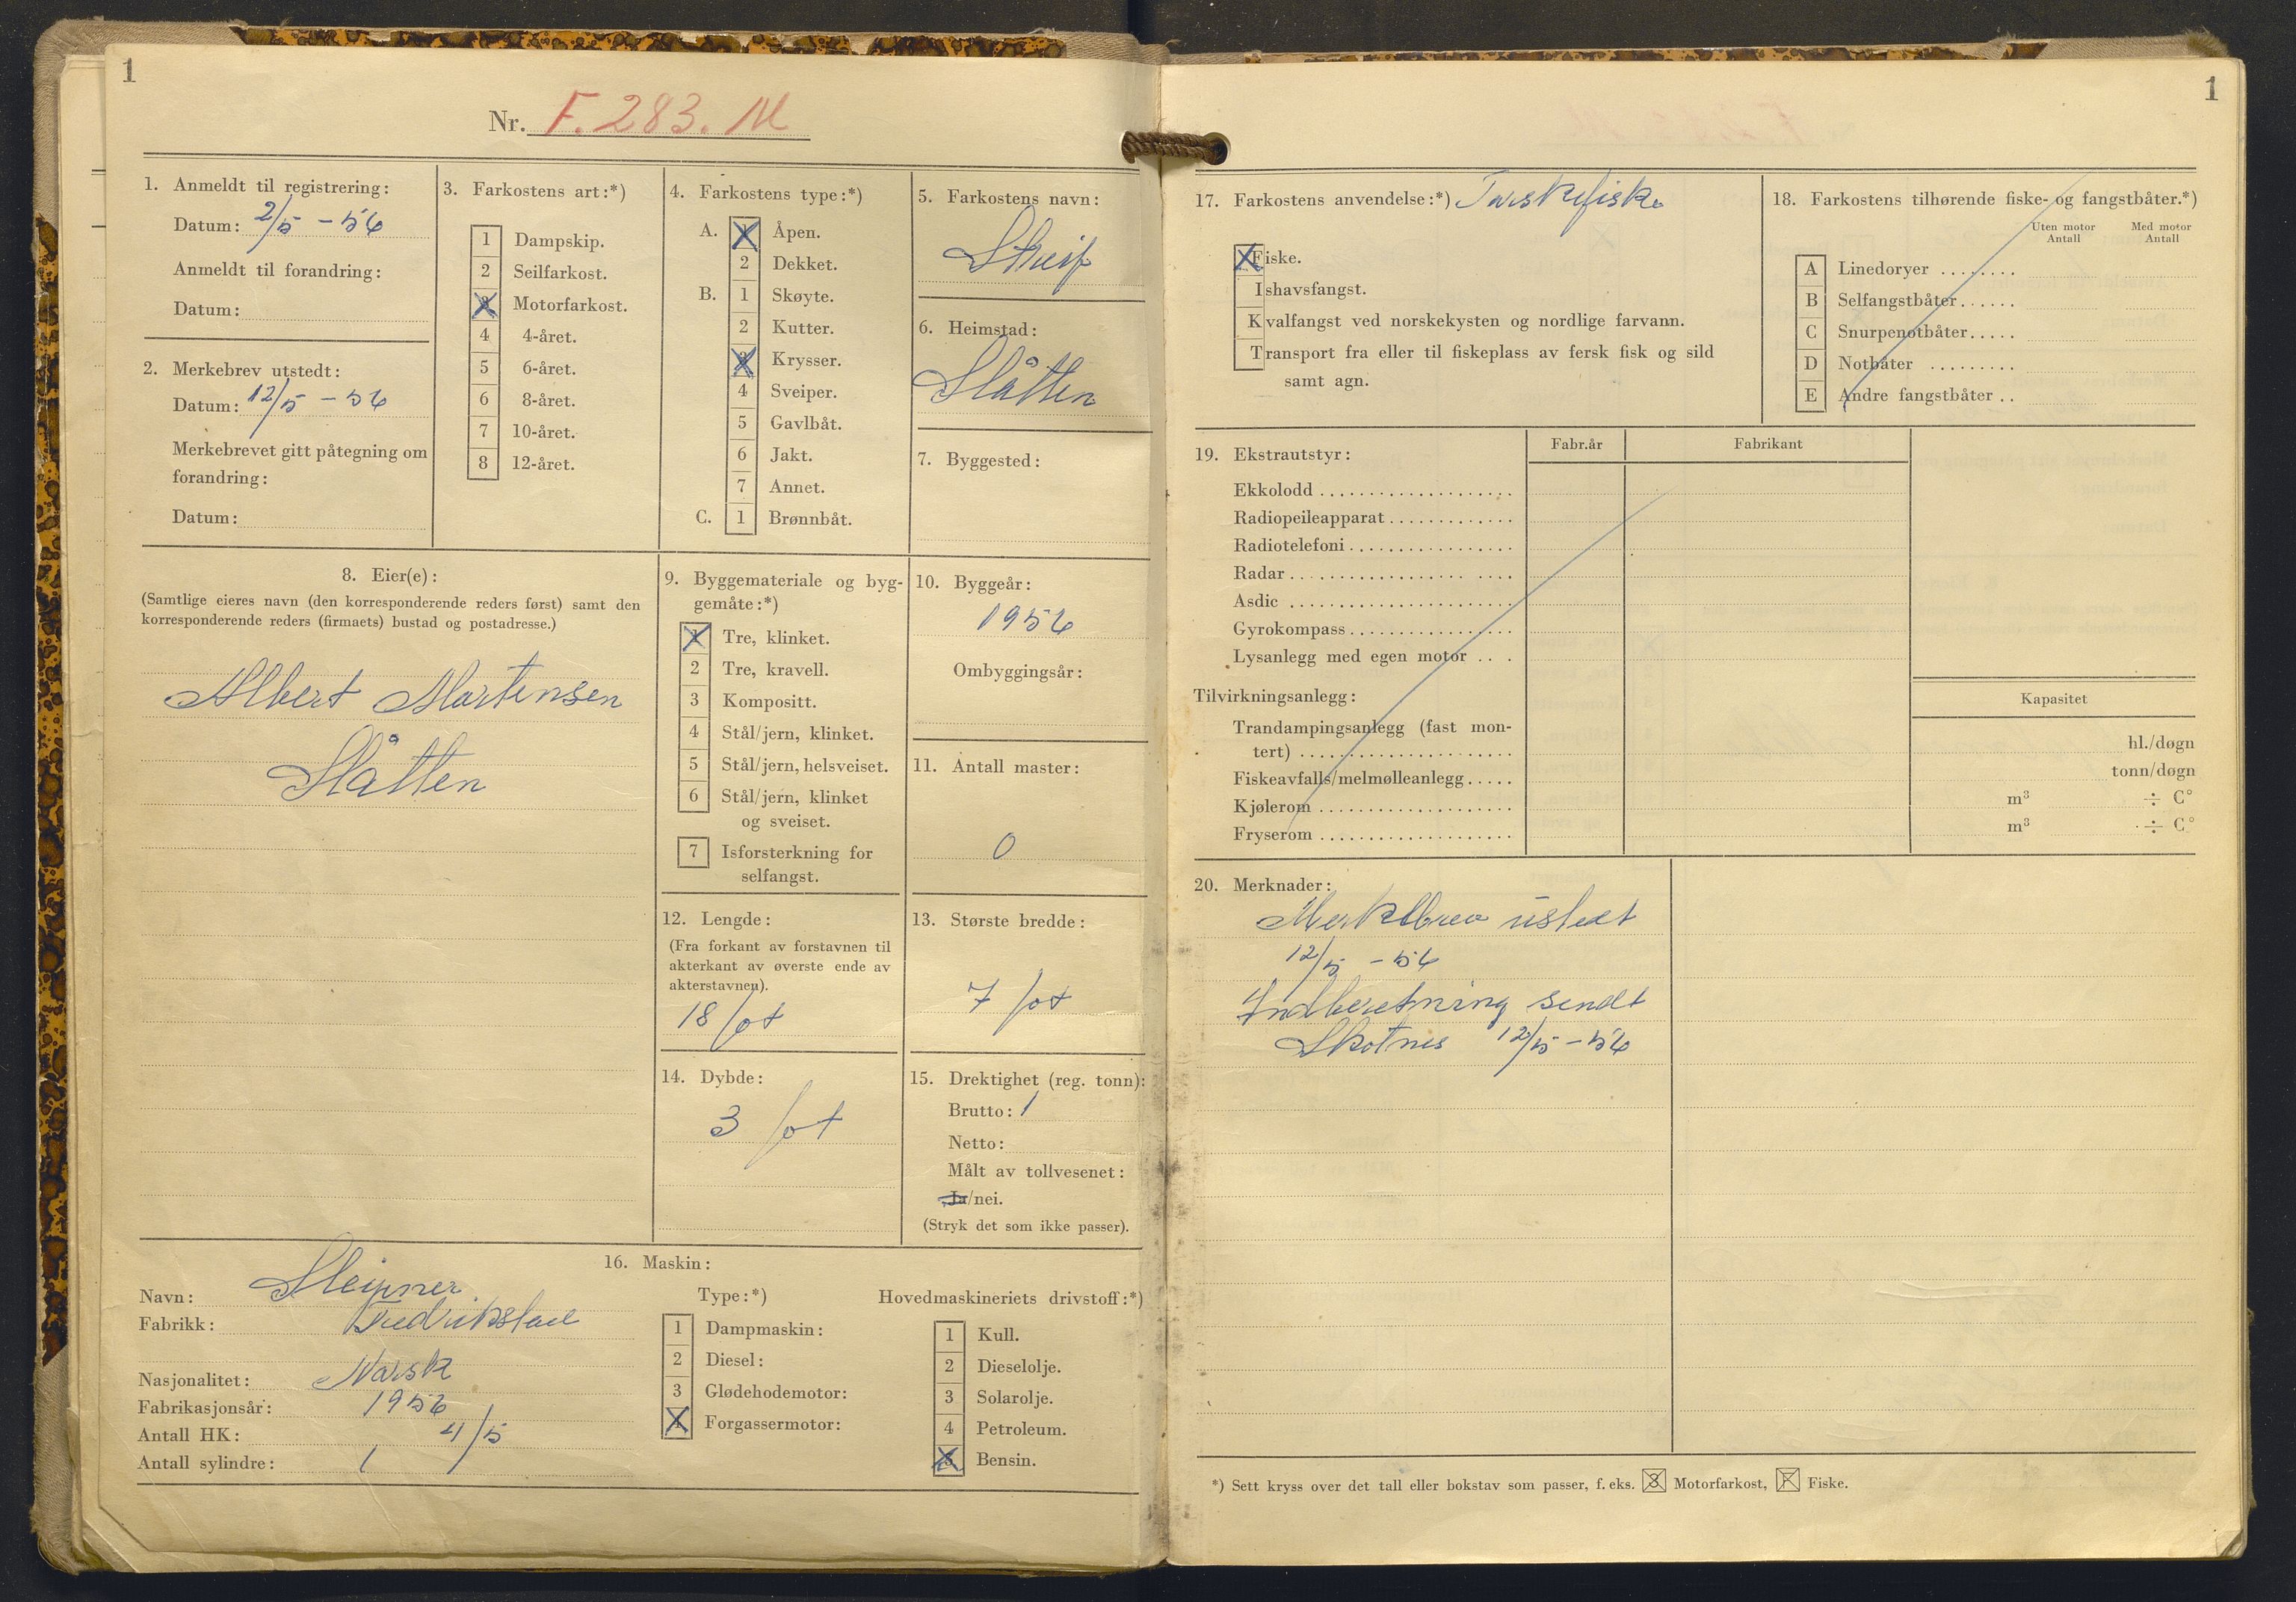 1
Nr. F. 283. M
1. Anmeldt til registrering:
Datum: 2/5 - 56
Anmeldt til forandring:
Datum:
2. Merkebrev utstedt:
Datum: 12/5 - 56
Merkebrevet gitt påtegning om
forandring:
Datum:
3. Farkostens art:*)
1 Dampskip.
2 Seilfarkost.
3 Motorfarkost.
4 4-året.
5 6-året.
6 8-året.
7 10-året.
8 12-året.
4. Farkostens type:*)
A. 1 Åpen.
2 Dekket.
B. 1 Skøyte.
2 Kutter.
3 Krysser.
4 Sveiper.
5 Gavlbåt.
6 Jakt.
7 Annet.
C. 1 Brønnbåt.
5. Farkostens navn:
6. Heimstad:
Slåtten
7. Byggested:
8. Eier(e):
(Samtlige eieres navn (den korresponderende reders først) samt den
korresponderende reders (firmaets) bustad og postadresse.)
Albert Martensen
Slåtten
9. Byggemateriale og byg-
gemåte:*)
1 Tre, klinket.
2 Tre, kravell.
3 Kompositt.
4 Stål/jern, klinket.
5 Stål/jern, helsveiset.
6 Stål/jern, klinket
og sveiset.
7 Isforsterkning for
selfangst.
10. Byggeår:
1956
Ombyggingsår:
11. Antall master:
0
12. Lengde:
(Fra forkant av forstavnen til
akterkant av øverste ende av
akterstavnen).
18 fot
13. Største bredde:
7 fot
14. Dybde:
3 fot
15. Drektighet (reg. tonn):
Brutto: 1
Netto:
Målt av tollvesenet:
Ja/nei.
(Stryk det som ikke passer).
16. Maskin:
Navn: Sleipner
Fabrikk: Fredrikstad
Nasjonalitet: Norsk
Fabrikasjonsår: 1956
Antall HK: 4/5
Antall sylindre: 1
Type:*)
1 Dampmaskin:
2 Diesel:
3 Glødehodemotor:
4 Forgassermotor:
Hovedmaskineriets drivstoff:*)
1 Kull.
2 Dieselolje.
3 Solarolje.
4 Petroleum.
5 Bensin.
1
17. Farkostens anvendelse:*) Torskefiske
Fiske.
Ishavsfangst.
Kvalfangst ved norskekysten og nordlige farvann.
Transport fra eller til fiskeplass av fersk fisk og sild
samt agn.
18. Farkostens tilhørende fiske- og fangstbåter.*)
Uten motor Med motor
Antall Antall
A Linedoryer ........
B Selfangstbåter......
C Snurpenotbåter.....
D Notbåter .........
E Andre fangstbåter ..
19. Ekstrautstyr: Fabr.år Fabrikant
Ekkolodd ....................
Radiopeileapparat.............
Radiotelefoni.................
Radar.. .................. ....
Asdic .......................
Gyrokompass.................
Lysanlegg med egen motor ...
Tilvirkningsanlegg: Kapasitet
Trandampingsanlegg (fast mon-
tert) ...................... hl./døgn
Fiskeavfalls/melmølleanlegg..... tonn/døgn
Kjølerom .................... m³ ÷ C°
Fryserom .................... m³ ÷ C°
20. Merknader:
Merkebrev ustedt
12/5 - 56
Indberetning sendt
Skotnes 12/5 - 56
*) Sett kryss over det tall eller bokstav som passer, f. eks. 3 Motorfarkost, F Fiske.